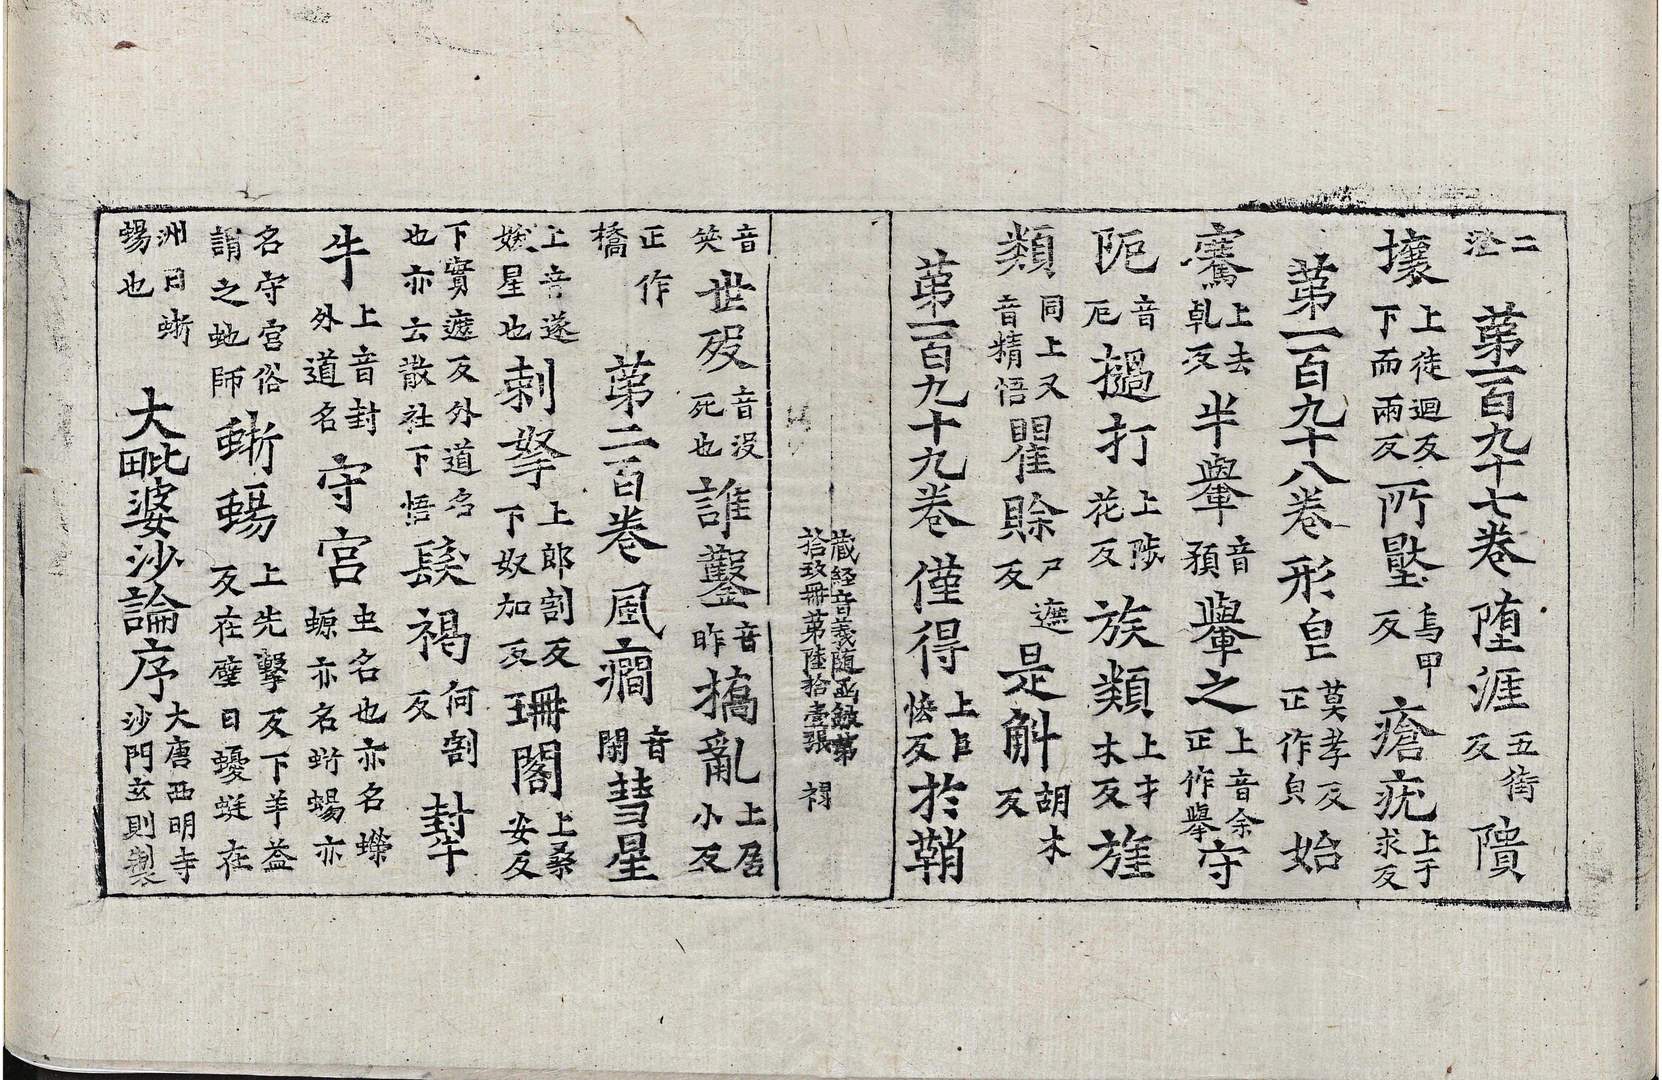 二滄 第一百九十七卷 墮涯五街反 隤
壞上徒迴反下而兩反 所壓烏甲反 瘡疣上于求反
第一百九十八卷 形皃莫孝反正作皃 始
騫上去乹反 半轝音預 轝之上音余正作轝 守
阨音厄 撾打上陟花反下 族類上才木反 旌
類同上又音精悟 瞿賖尸遮反 是斛胡木反
第一百九十九卷 僅得上巨恡反 於鞘
藏経音義随函録第
拾玖冊第陸拾壹張 禍
音笑 世歿音没死也 誰鑿音昨 撟亂上居小反
正作橋 第二百卷 風癎音閑 彗星
上音遂妖星也 剌拏上郎割反下奴加反 珊閣上桑安反
下實遮反外道名也亦云散社下悟 髮褐何割反 封牛
牛上音封外道名 守宮虫名也亦名蠑螈亦名蜥蜴亦
名守宮俗謂之虵師 蜥蜴上先擊反下羊益反在壁曰蝘蜓在
洲曰蜥蜴也 大毗婆沙論序大唐西明寺沙門玄則製